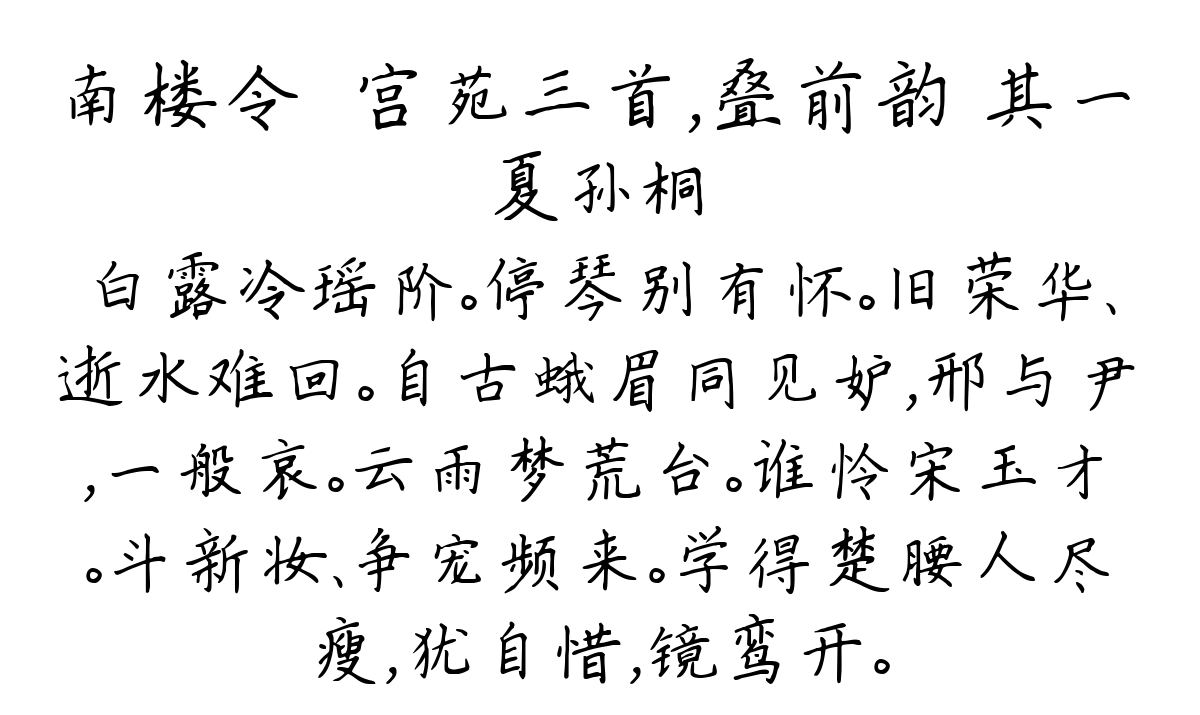 南楼令 宫苑三首,叠前韵 其一
夏孙桐
白露冷瑶阶。停琴别有怀。旧荣华、
逝水难回。自古蛾眉同见妒,邢与尹
,一般哀。云雨梦荒台。谁怜宋玉才
。斗新妆、争宠频来。学得楚腰人尽
瘦,犹自惜,镜鸾开。